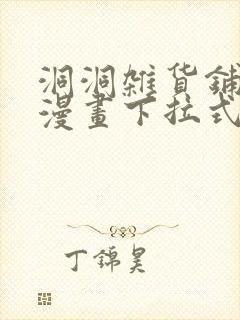 洞洞雑货鋪
漫畫下拉式
丁錦昊